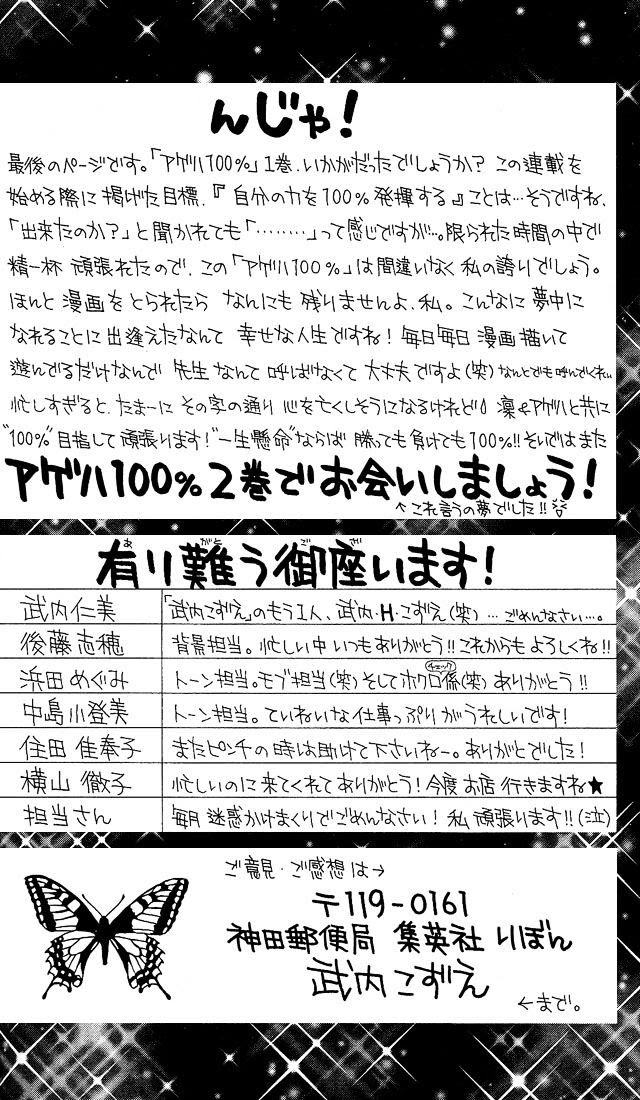 んじゃ!
最後のページです。「アゲハ100%」1巻、いかがだったでしょうか? この連載を
始める際に掲げた目標、『自分の力を100%発揮する』ことは…そうですね、
「出来たのか?」と聞かれても「………」って感じですが…。限られた時間の中で
精一杯 頑張れたので、この「アゲハ100%」は間違いなく私の誇りでしょう。
ほんと 漫画を とられたら なんにも 残りませんよ、私。こんなに 夢中に
なれることに出逢えたなんて 幸せな人生ですね! 毎日毎日 漫画描いて
遊んでるだけなんで 先生 なんて 呼ばなくて 大丈夫ですよ(笑)なんとでも呼んでくれい
忙しすぎると、たまーに その字の通り 心を亡くしそうになるけれど 凛&アゲハと共に
"100%"目指して 頑張ります!"一生懸命"ならば 勝っても負けても100%!!そいではまた
アゲハ100%2巻でお会いしましょう!
↑これ言うの夢でした!!
有り難う御座います!
あ がと ご ざ
武内仁美 「武内こずえ」のもう1人、武内・H・こずえ(笑) …ごめんなさい…。
後藤志穂 背景担当。忙しい中いつもありがとう!!これからもよろしくね!!
浜田めぐみ トーン担当。モブ担当(笑)そしてホクロ係(笑)ありがとう!!
チェック
中島小登美 トーン担当。ていねいな仕事っぷりがうれしいです!
住田佳奉子 またピンチの時は助けて下さいねー。ありがとでした!
横山徹子 忙しいのに来てくれてありがとう!今度お店行きますね★
担当さん 毎月迷惑かけまくりでごめんなさい!私頑張ります!!(泣)
ご意見・ご感想は→
〒119-0161
神田郵便局 集英社 りぼん
武内こずえ
←まで。